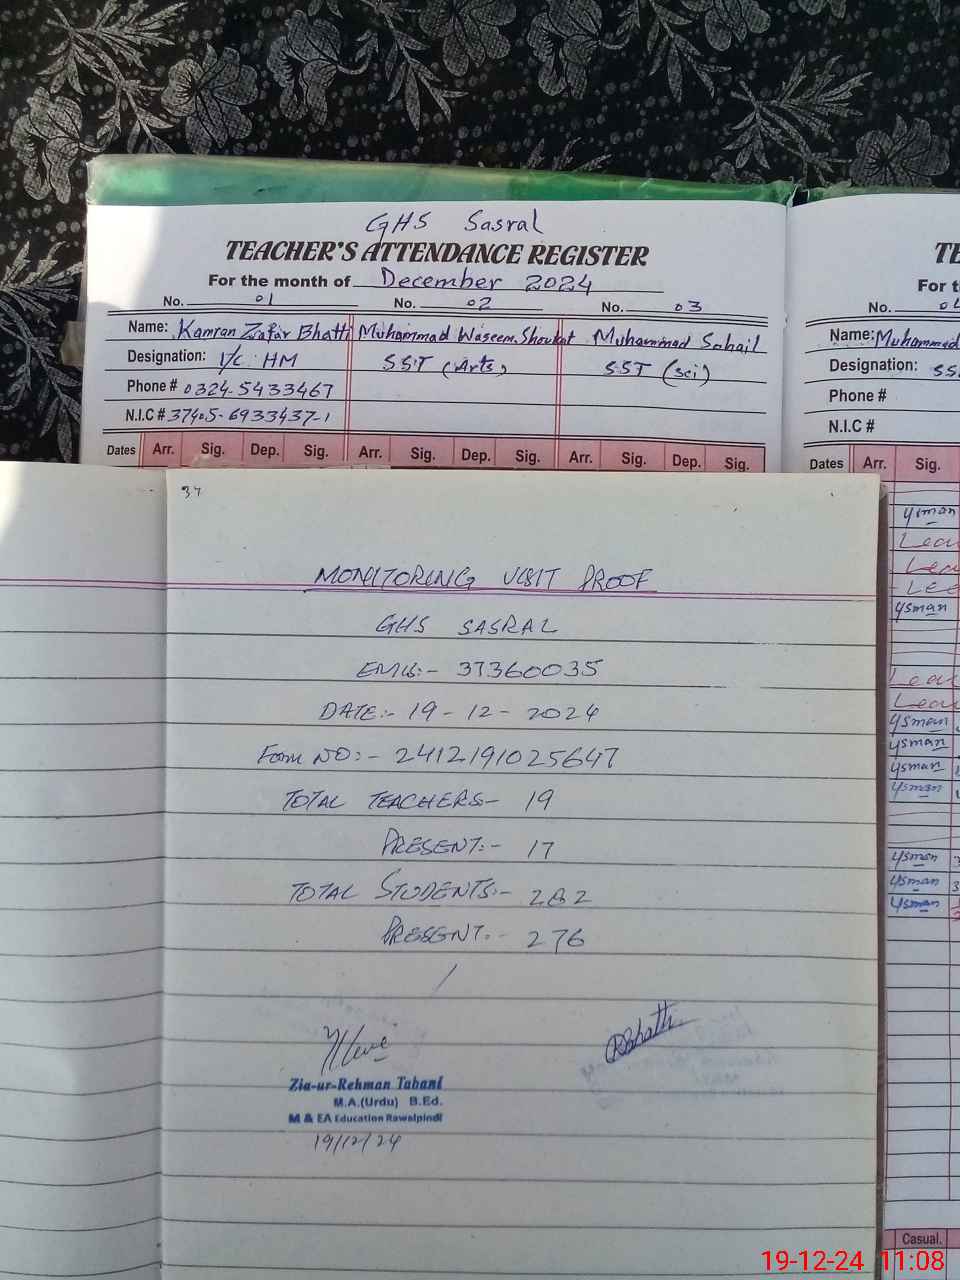 GHS Sasral
TEACHER'S ATTENDANCE REGISTER
For the month of December 2024
No. 01 No. 02 No. 03
Name: Kamran Zafar Bhatti Muhammad Waseem Shoukat Muhammad Sohail
Designation: I/C HM SST (Arts) SST (Sci)
Phone # 0324-5433467
N.I.C # 37405-6933437-1
Dates Arr. Sig. Dep. Arr. Sig. Dep. Sig. Arr. Sig. Dep. Sig.
No. 04
Name: Muhammad
Designation:
Phone #
N.I.C #
Dates Arr. Sig.
37
MONITORING VISIT PROOF
GHS SASRAL
EMIS:- 37360035
DATE:- 19-12-2024
Form NO:- 2412191025647
TOTAL TEACHERS- 19
PRESENT:- 17
TOTAL STUDENTS:- 282
PRESENT:- 276
Zia-ur-Rehman Tabani
M.A.(Urdu) B.Ed.
M & EA Education Rawalpindi
19/12/24
Casual.
19-12-24 11:08